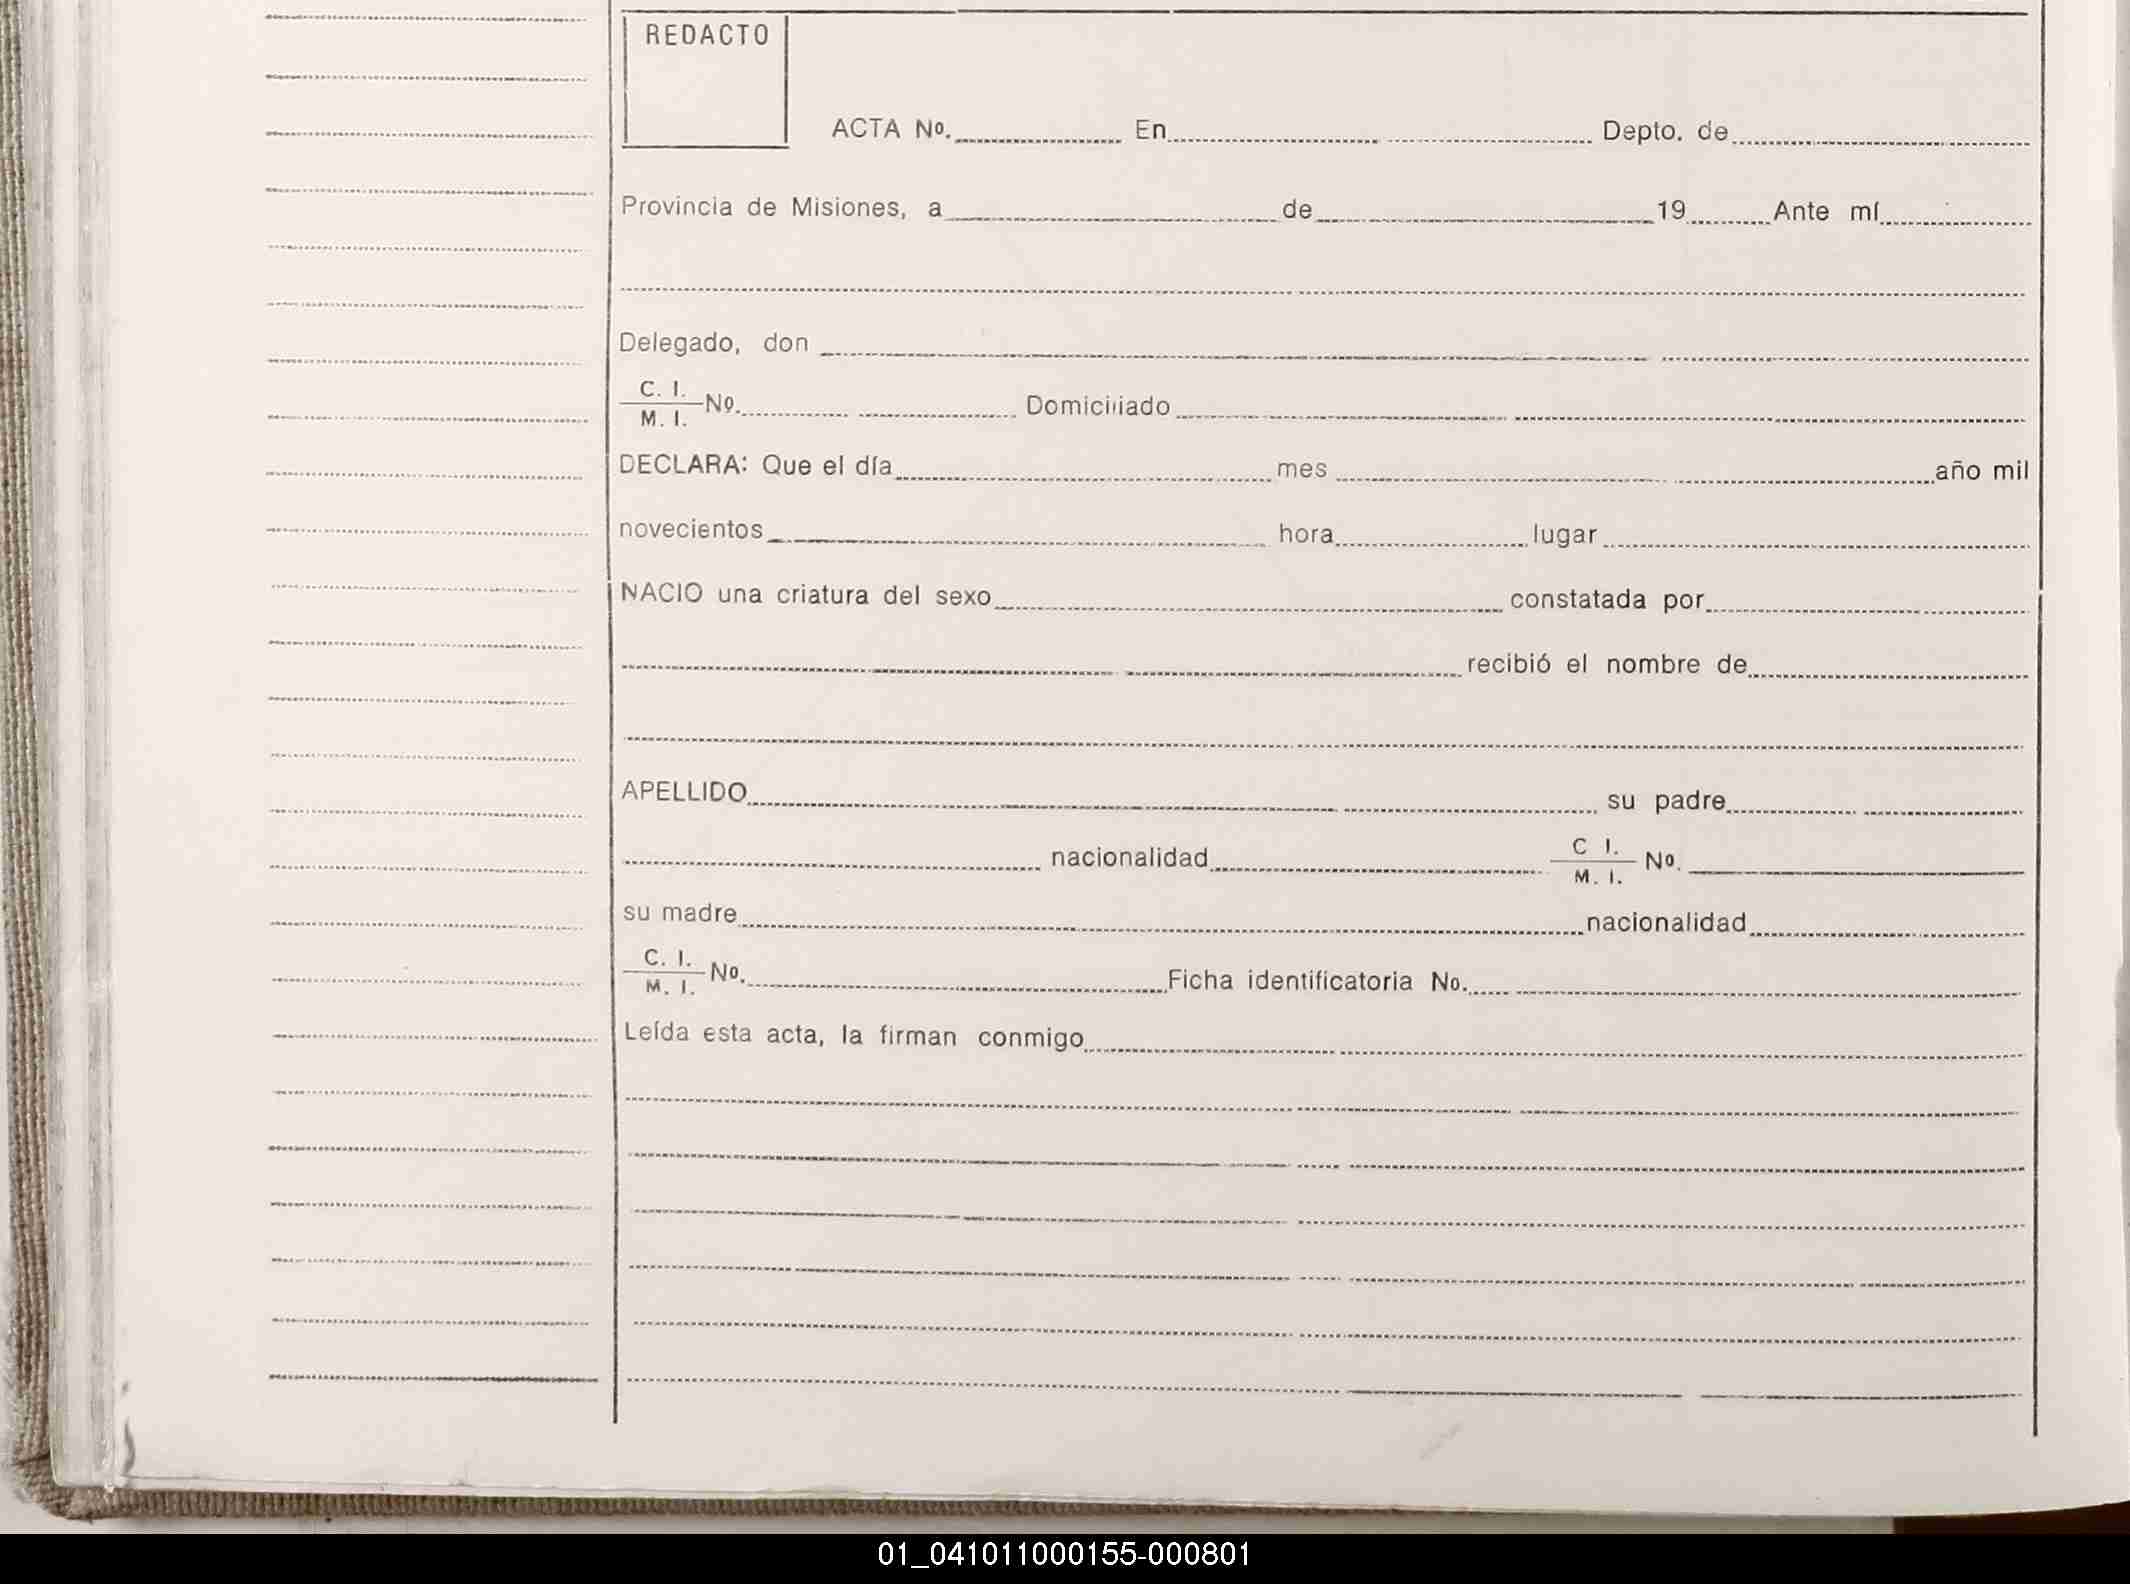 REDACTO
ACTA Nº. En Depto. de
Provincia de Misiones, a de 19 Ante mí
Delegado, don
C. I.
M. I. Nº. Domiciliado
DECLARA: Que el día mes año mil
novecientos hora lugar
NACIO una criatura del sexo constatada por
recibió el nombre de
APELLIDO su padre
nacionalidad C I.
M. I. Nº.
su madre nacionalidad
C. I.
M. I. Nº. Ficha identificatoria No.
Leída esta acta, la firman conmigo
01_041011000155-000801